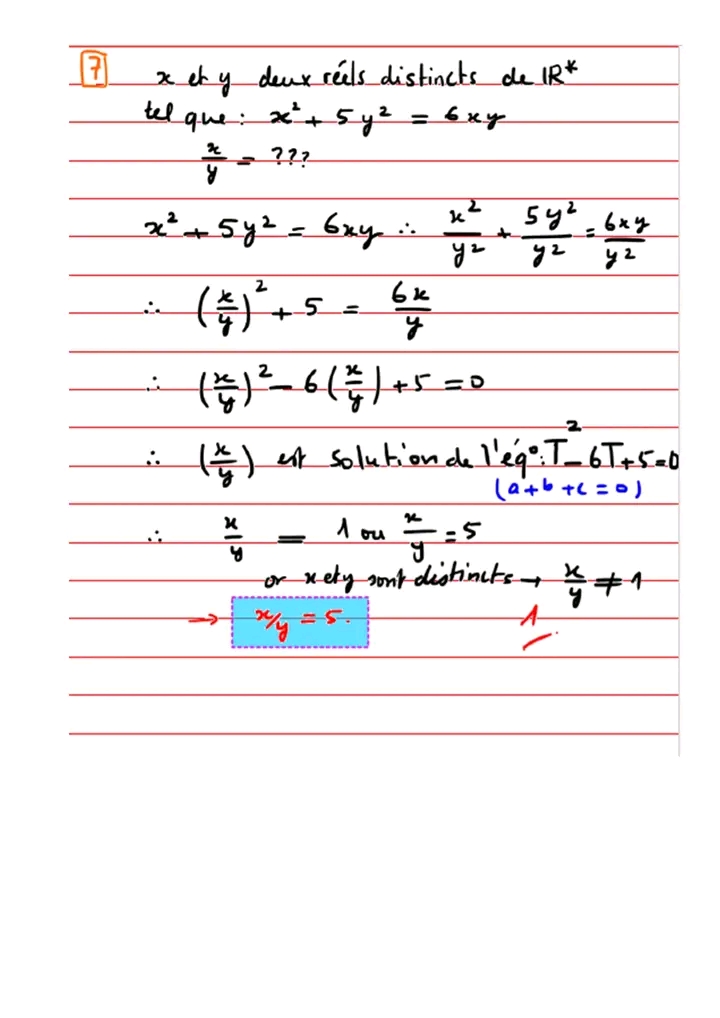 7 x et y deux réels distincts de IR*
tel que : x² + 5y² = 6xy
x/y = ???
x² + 5y² = 6xy ∴ x²/y² + 5y²/y² = 6xy/y²
∴ (x/y)² + 5 = 6x/y
∴ (x/y)² - 6(x/y) + 5 = 0
∴ (x/y) est solution de l'éq°: T² - 6T + 5 = 0
(a + b + c = 0)
∴ x/y = 1 ou x/y = 5
or x et y sont distincts → x/y ≠ 1
→ x/y = 5. 1